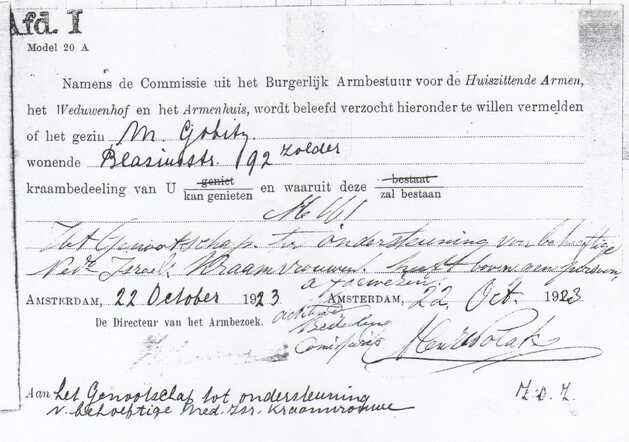 Afd. I
Model 20 A
Namens de Commissie uit het Burgerlijk Armbestuur voor de Huiszittende Armen,
het Weduwenhof en het Armenhuis, wordt beleefd verzocht hieronder te willen vermelden
of het gezin M. Gobitz
wonende Blasiusstr. 192 zolder
kraambedeeling van U geniet kan genieten en waaruit deze bestaat zal bestaan
Het Genootschap ter ondersteuning van behoeftige
Ned. Israel. Kraamvrouwen heeft bovengen. persoon
Amsterdam, 22 October 1923 Amsterdam, 22 Oct. 1923
De Directeur van het Armbezoek.
Aan het Genootschap tot ondersteuning
v. behoeftige Ned. Isr. Kraamvrouwe